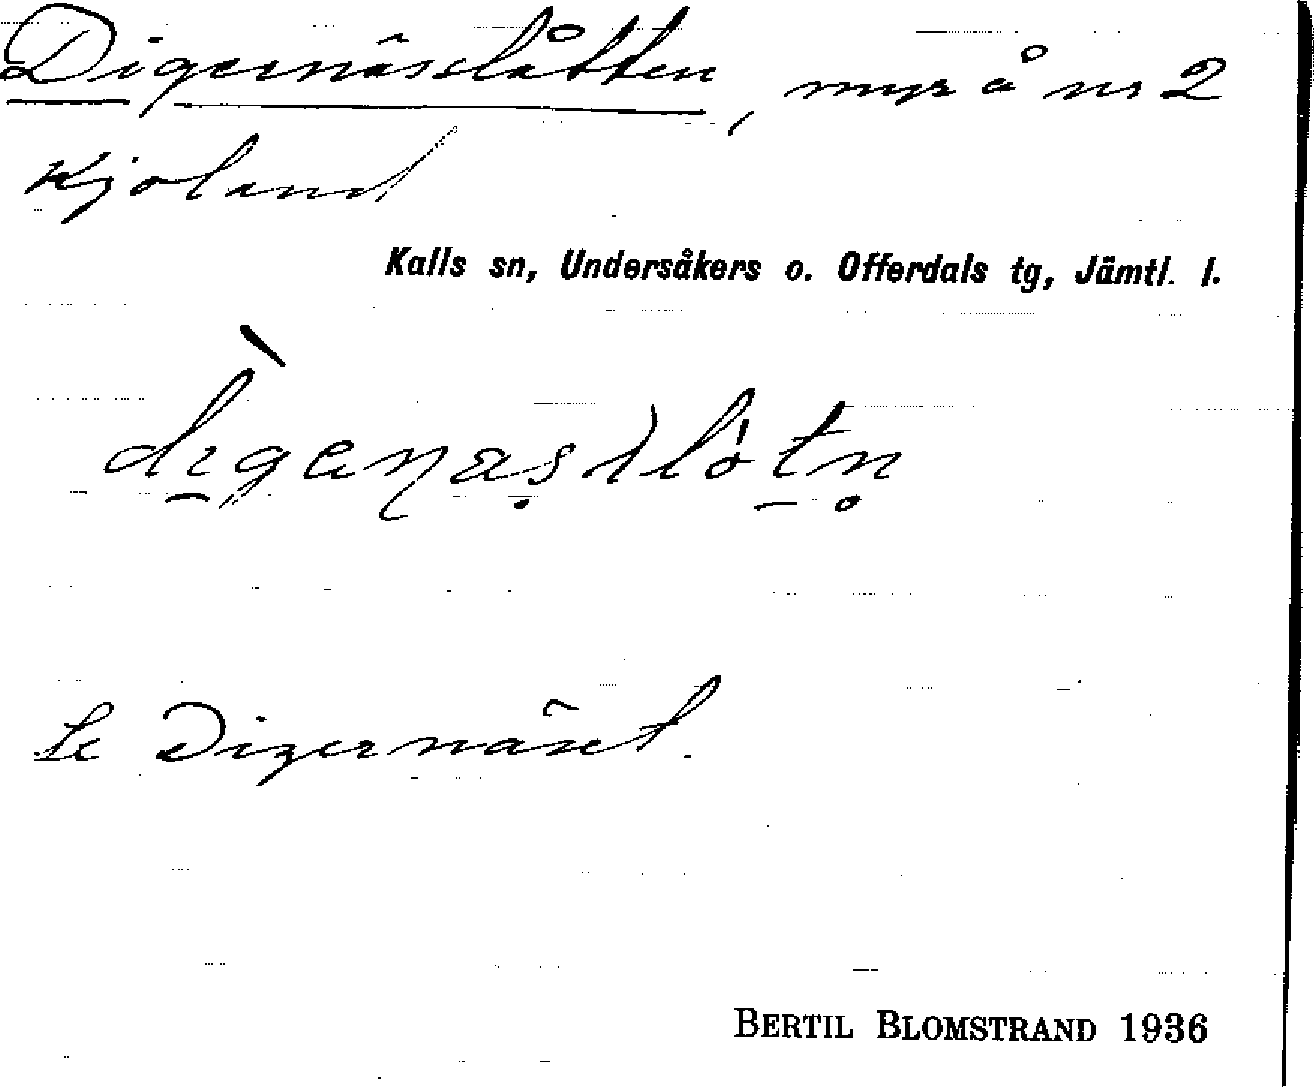 Digernässlåtten, myr å nr 2
Kjoland
Kalls sn, Undersåkers o. Offerdals tg, Jämtl. l.
Se Digernäset.
BERTIL BLOMSTRAND 1936